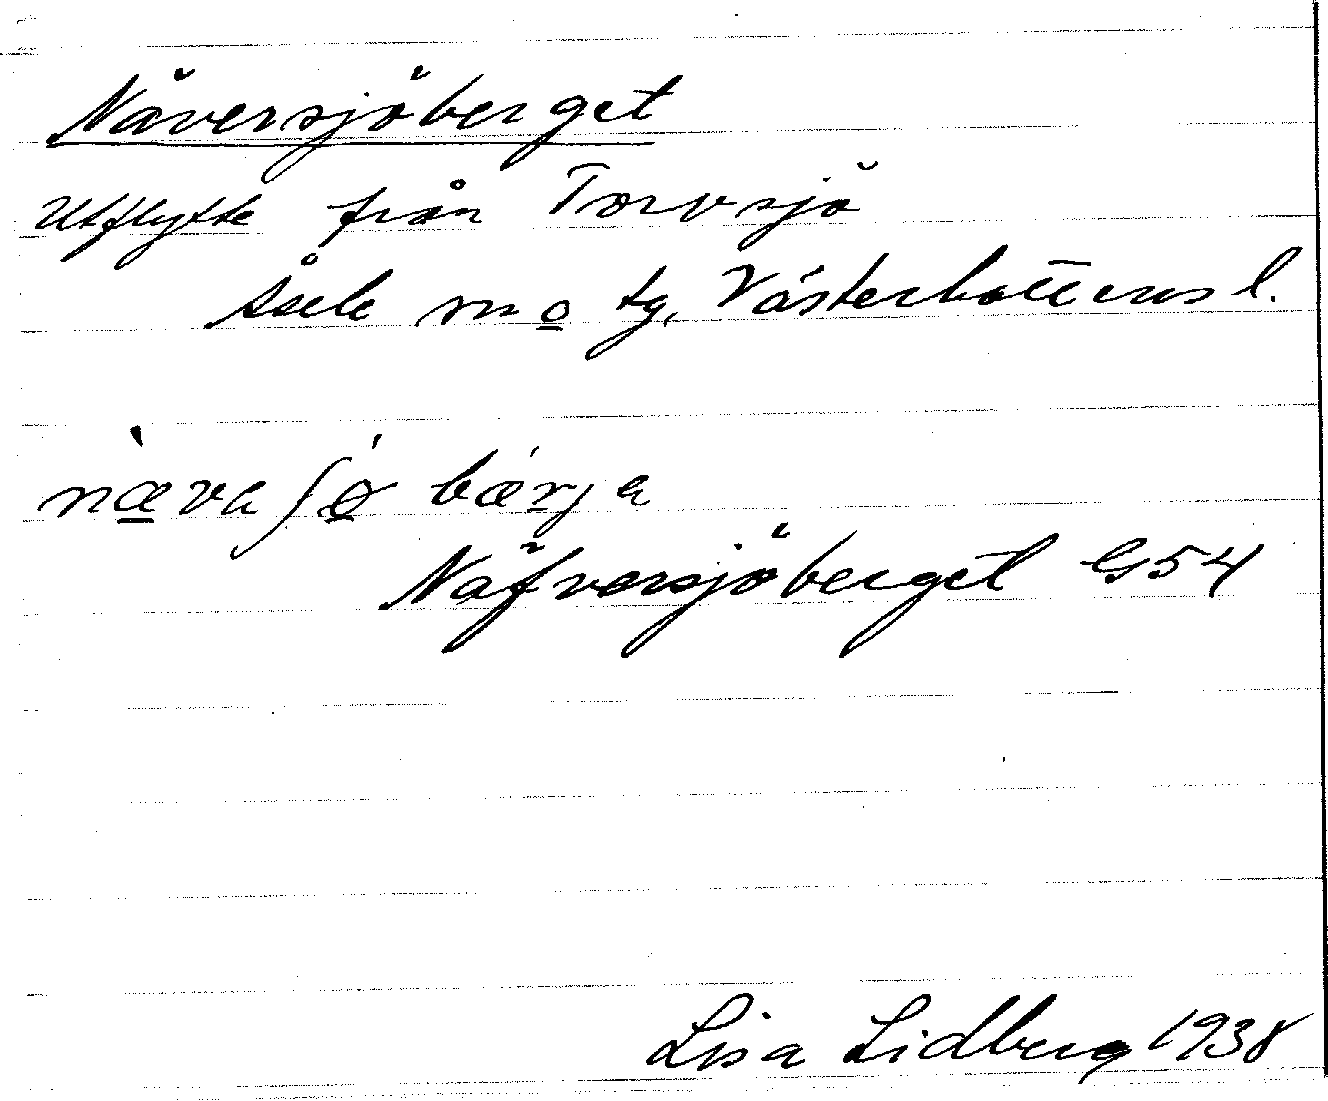 Näversjöberget
Utflytte från Torvsjö
Åsele sn o tg, Västerbottens l.
nǽva ʃǿ bǽrja
Näfversjöberget G54
Lisa Lidberg 1938